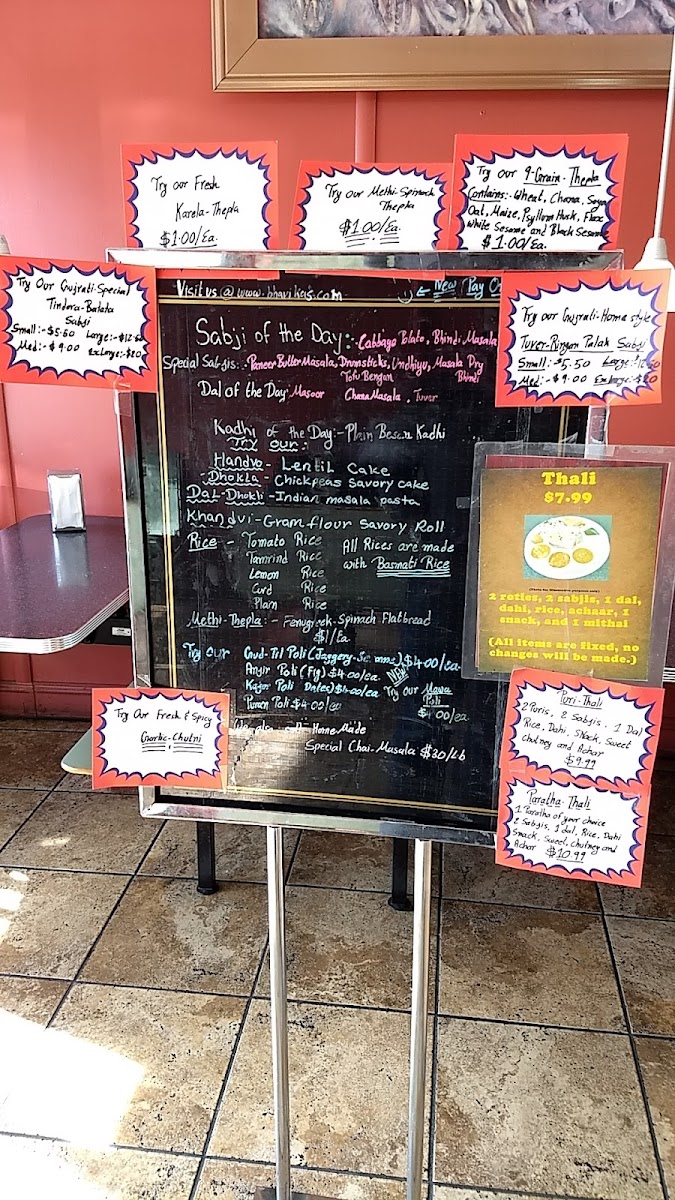 Try our Fresh
Karela-Thepla
$1.00/Ea.
Try our Methi-Spinach
Thepla
$1.00/Ea.
Try our 9-Grain-Thepla
Contains:-Wheat, Chana, Soya
Oat, Maize, Psyllium Husk, Flax
White Sesame and Black Sesame
$1.00/Ea.
Try Our Gujrati-Special
Tindora-Batata
Sabji
Small:-$5.50 Large:-$12.50
Med:-$9.00 Ex Large:-$20
Visit us @ www.bhavikas.com
New Pay
Sabji of the Day:-Cabbage Potato, Bhindi Masala
Special Sabjis:-Paneer Butter Masala, Drumsticks, Undhiyu, Masala Dry
Tofu Bengan Bhindi
Dal of the Day Masoor Chana Masala Tuver
Try our Gujrati-Home style
Tuver-Ringan Palak Sabji
Small:-$5.50 Large:-
Med:-$9.00 Ex Large:-$20
Kadhi of the Day:-Plain Besan Kadhi
Try our:-
Handvo-Lentil Cake
Dhokla-Chickpeas savory cake
Dal-Dhokli-Indian masala pasta
Khandvi-Gram flour Savory Roll
Rice - Tomato Rice
Tamrind Rice
Lemon Rice
Curd Rice
Plain Rice
All Rices are made
with Basmati Rice
Methi-Thepla:-Fenugreek-Spinach Flatbread
$1/Ea
Try our Gud-Til Poli (Jaggery-Sesame) $4.00/ea
Anjir Poli (Fig) $4.00/ea
Kajor Poli Dates) $4.00/ea
Puran Poli $4.00/ea
NEW
Try our Mawa
Poli
$4.00/ea
We also sell Home Made
Special Chai-Masala $30/Lb
Thali
$7.99
2 roties, 2 sabjis, 1 dal,
dahi, rice, achaar, 1
snack, and 1 mithai
(All items are fixed, no
changes will be made.)
Try Our Fresh & Spicy
Garlic-Chutni
Puri-Thali
2 Puris, 2 Sabjis, 1 Dal
Rice, Dahi, Snack, Sweet
Chutney and Achar
$9.99
Paratha-Thali
1 Paratha of your choice
2 Sabjis, 1 dal, Rice, Dahi
Snack, Sweet, Chutney and
Achar $10.99